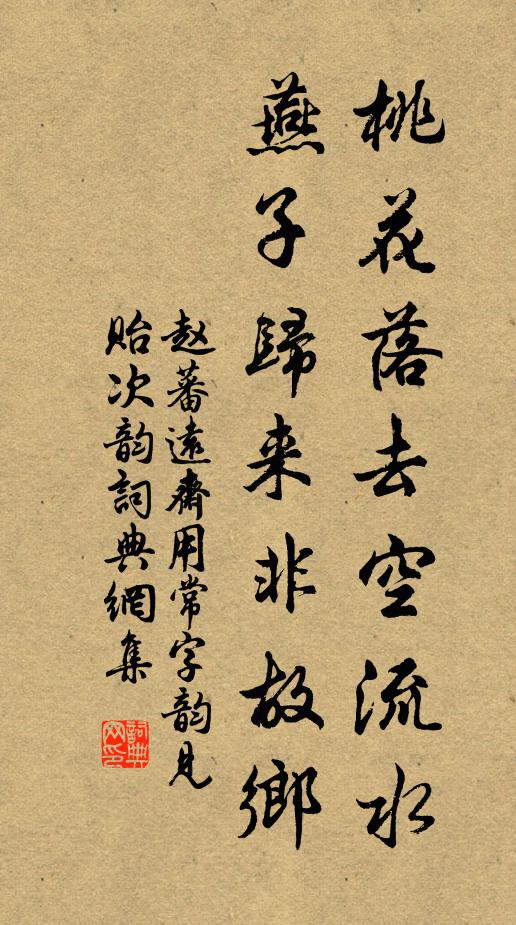 桃花落去空流水
燕子歸来非故鄉
赵蕃遠齋用常字韵見
贻次韵詞典網集
詞典
网印